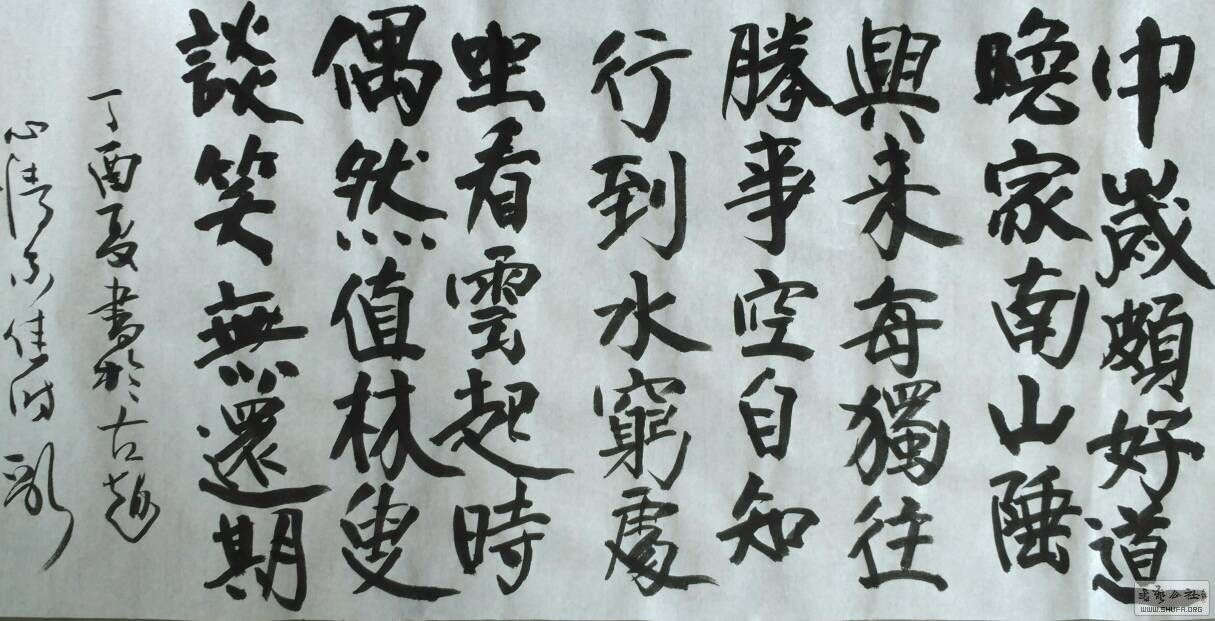 中歲頗好道
晚家南山陲
興來每獨往
勝事空自知
行到水窮處
坐看雲起時
偶然值林叟
談笑無還期
丁酉夏書於古趙
心清
WWW.SHUFA.ORG